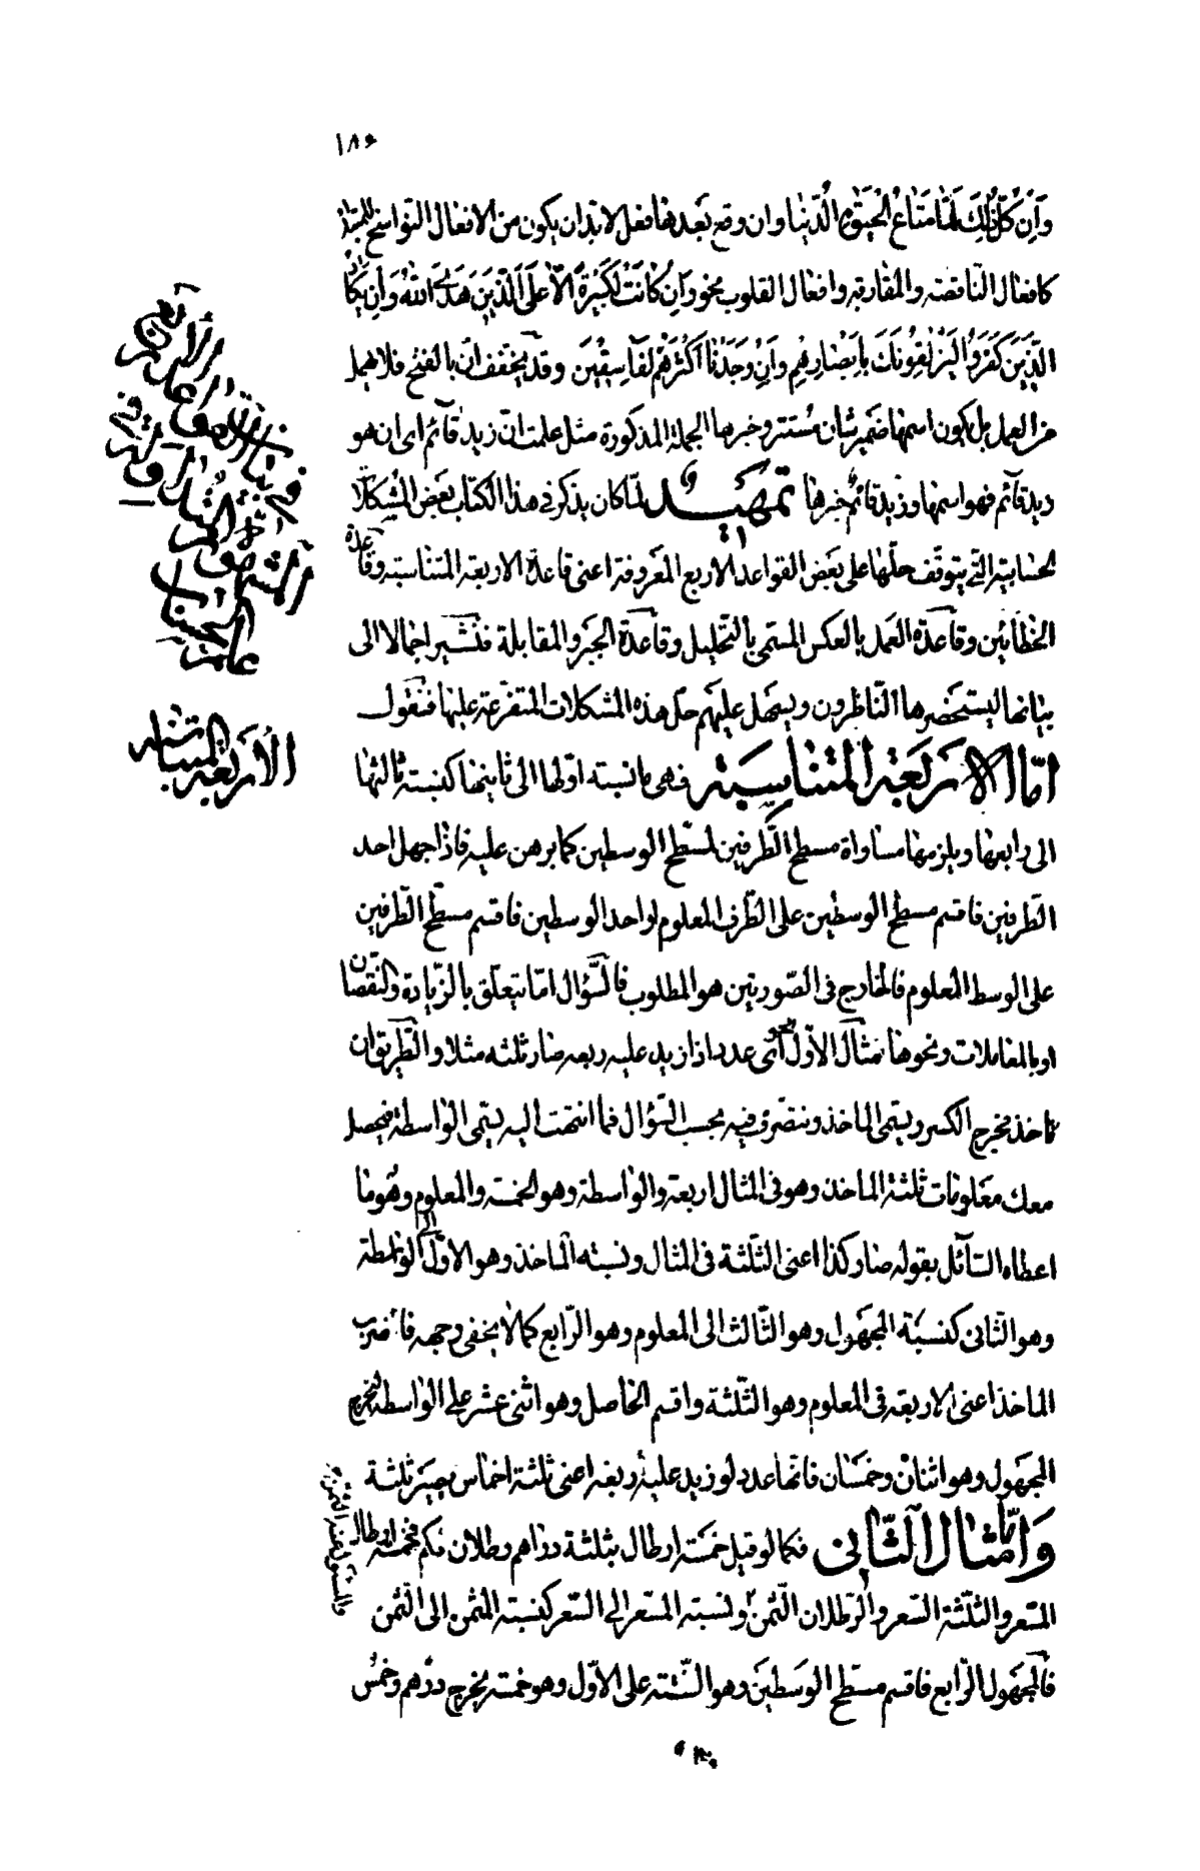 ١٨۶
وَاِنْ كُلُّ ذٰلِكَ لَمَّا مَتَاعُ الْحَيٰوةِ الدُّنْيَا وان وقع بعدها فعل لابد ان يكون من الافعال النواسخ للمبتدأ
كافعال الناقصة والمقاربة وافعال القلوب نحو وَاِنْ كَانَتْ لَكَبِيْرَةً اِلَّا عَلَى الَّذِيْنَ هَدَى اللّٰهُ وَاِنْ يَكَادُ
الَّذِيْنَ كَفَرُوْا لَيُزْلِقُوْنَكَ بِاَبْصَارِهِمْ وَاِنْ وَجَدْنَا اَكْثَرَهُمْ لَفَاسِقِيْنَ وقد يخفف ان بالفتح فلا يهمل
من العمل بل يكون اسمها ضمير شان مستتر وخبرها الجملة المذكورة مثل علمت ان زيد قائم اى ان هو
زيد قائم فهو اسمها وزيد قائم خبرها تمهيد لما كان يذكر فى هذا الكتاب بعض المشكلات
الحسابية التى يتوقف حلها على بعض القواعد الاربع المعروفة اعنى قاعدة الاربعة المتناسبة وقاعدة
الخطائين وقاعدة العمل بالعكس المسمى بالتحليل وقاعدة الجبر والمقابلة فنشير اجمالا الى
بيانها ليستحضرها الناظرون ويسهل عليهم حل هذه المشكلات المتفرعة عليها فنقول
امّا الاربعة المتناسبة فهى ما نسبة اولها الى ثانيها كنسبة ثالثها
الى رابعها ويلزمها مساواة مسطح الطرفين لمسطح الوسطين كما برهن عليه فاذا جهل احد
الطرفين فاقسم مسطح الوسطين على الطرف المعلوم او احد الوسطين فاقسم مسطح الطرفين
على الوسط المعلوم فالخارج فى الصورتين هو المطلوب فالسؤال اما يتعلق بالزيادة والنقصان
او بالمعاملات ونحوها مثال الاول نحو اى عدد اذا زيد عليه ربعه صار ثلثة مثلا والطريق ان
تاخذ مخرج الكسر ويسمى الماخذ وتتصرف فيه بحسب السؤال فما انتهت اليه يسمى الواسطة فيحصل
معك معلومات ثلثة الماخذ وهو فى المثال اربعة والواسطة وهو الخمسة والمعلوم وهو ما
اعطاه السائل بقوله صار كذا اعنى الثلثة فى المثال ونسبة الماخذ وهو الاول الى الواسطة
وهو الثانى كنسبة المجهول وهو الثالث الى المعلوم وهو الرابع كما لا يخفى وجهه فاضرب
الماخذ اعنى الاربعة فى المعلوم وهو الثلثة واقسم الحاصل وهو اثنى عشر على الواسطة ليخرج
المجهول وهو اثنان وخمسان فانها عدد لو زيد عليه ربعه اعنى ثلثة اخماس يصير ثلثة
وَامّا مثال الثّانى فكما لو قيل خمسة ارطال بثلثة دراهم رطلان بكم فخمسة ارطال
المسعر والثلثة السعر والرطلان المثمن ونسبة المسعر الى السعر كنسبة المثمن الى الثمن
فالمجهول الرابع فاقسم مسطح الوسطين وهو الستة على الاول وهو خمسة يخرج درهم وخمس
الاربعة المتناسبة
والمسئول عنه الثمن